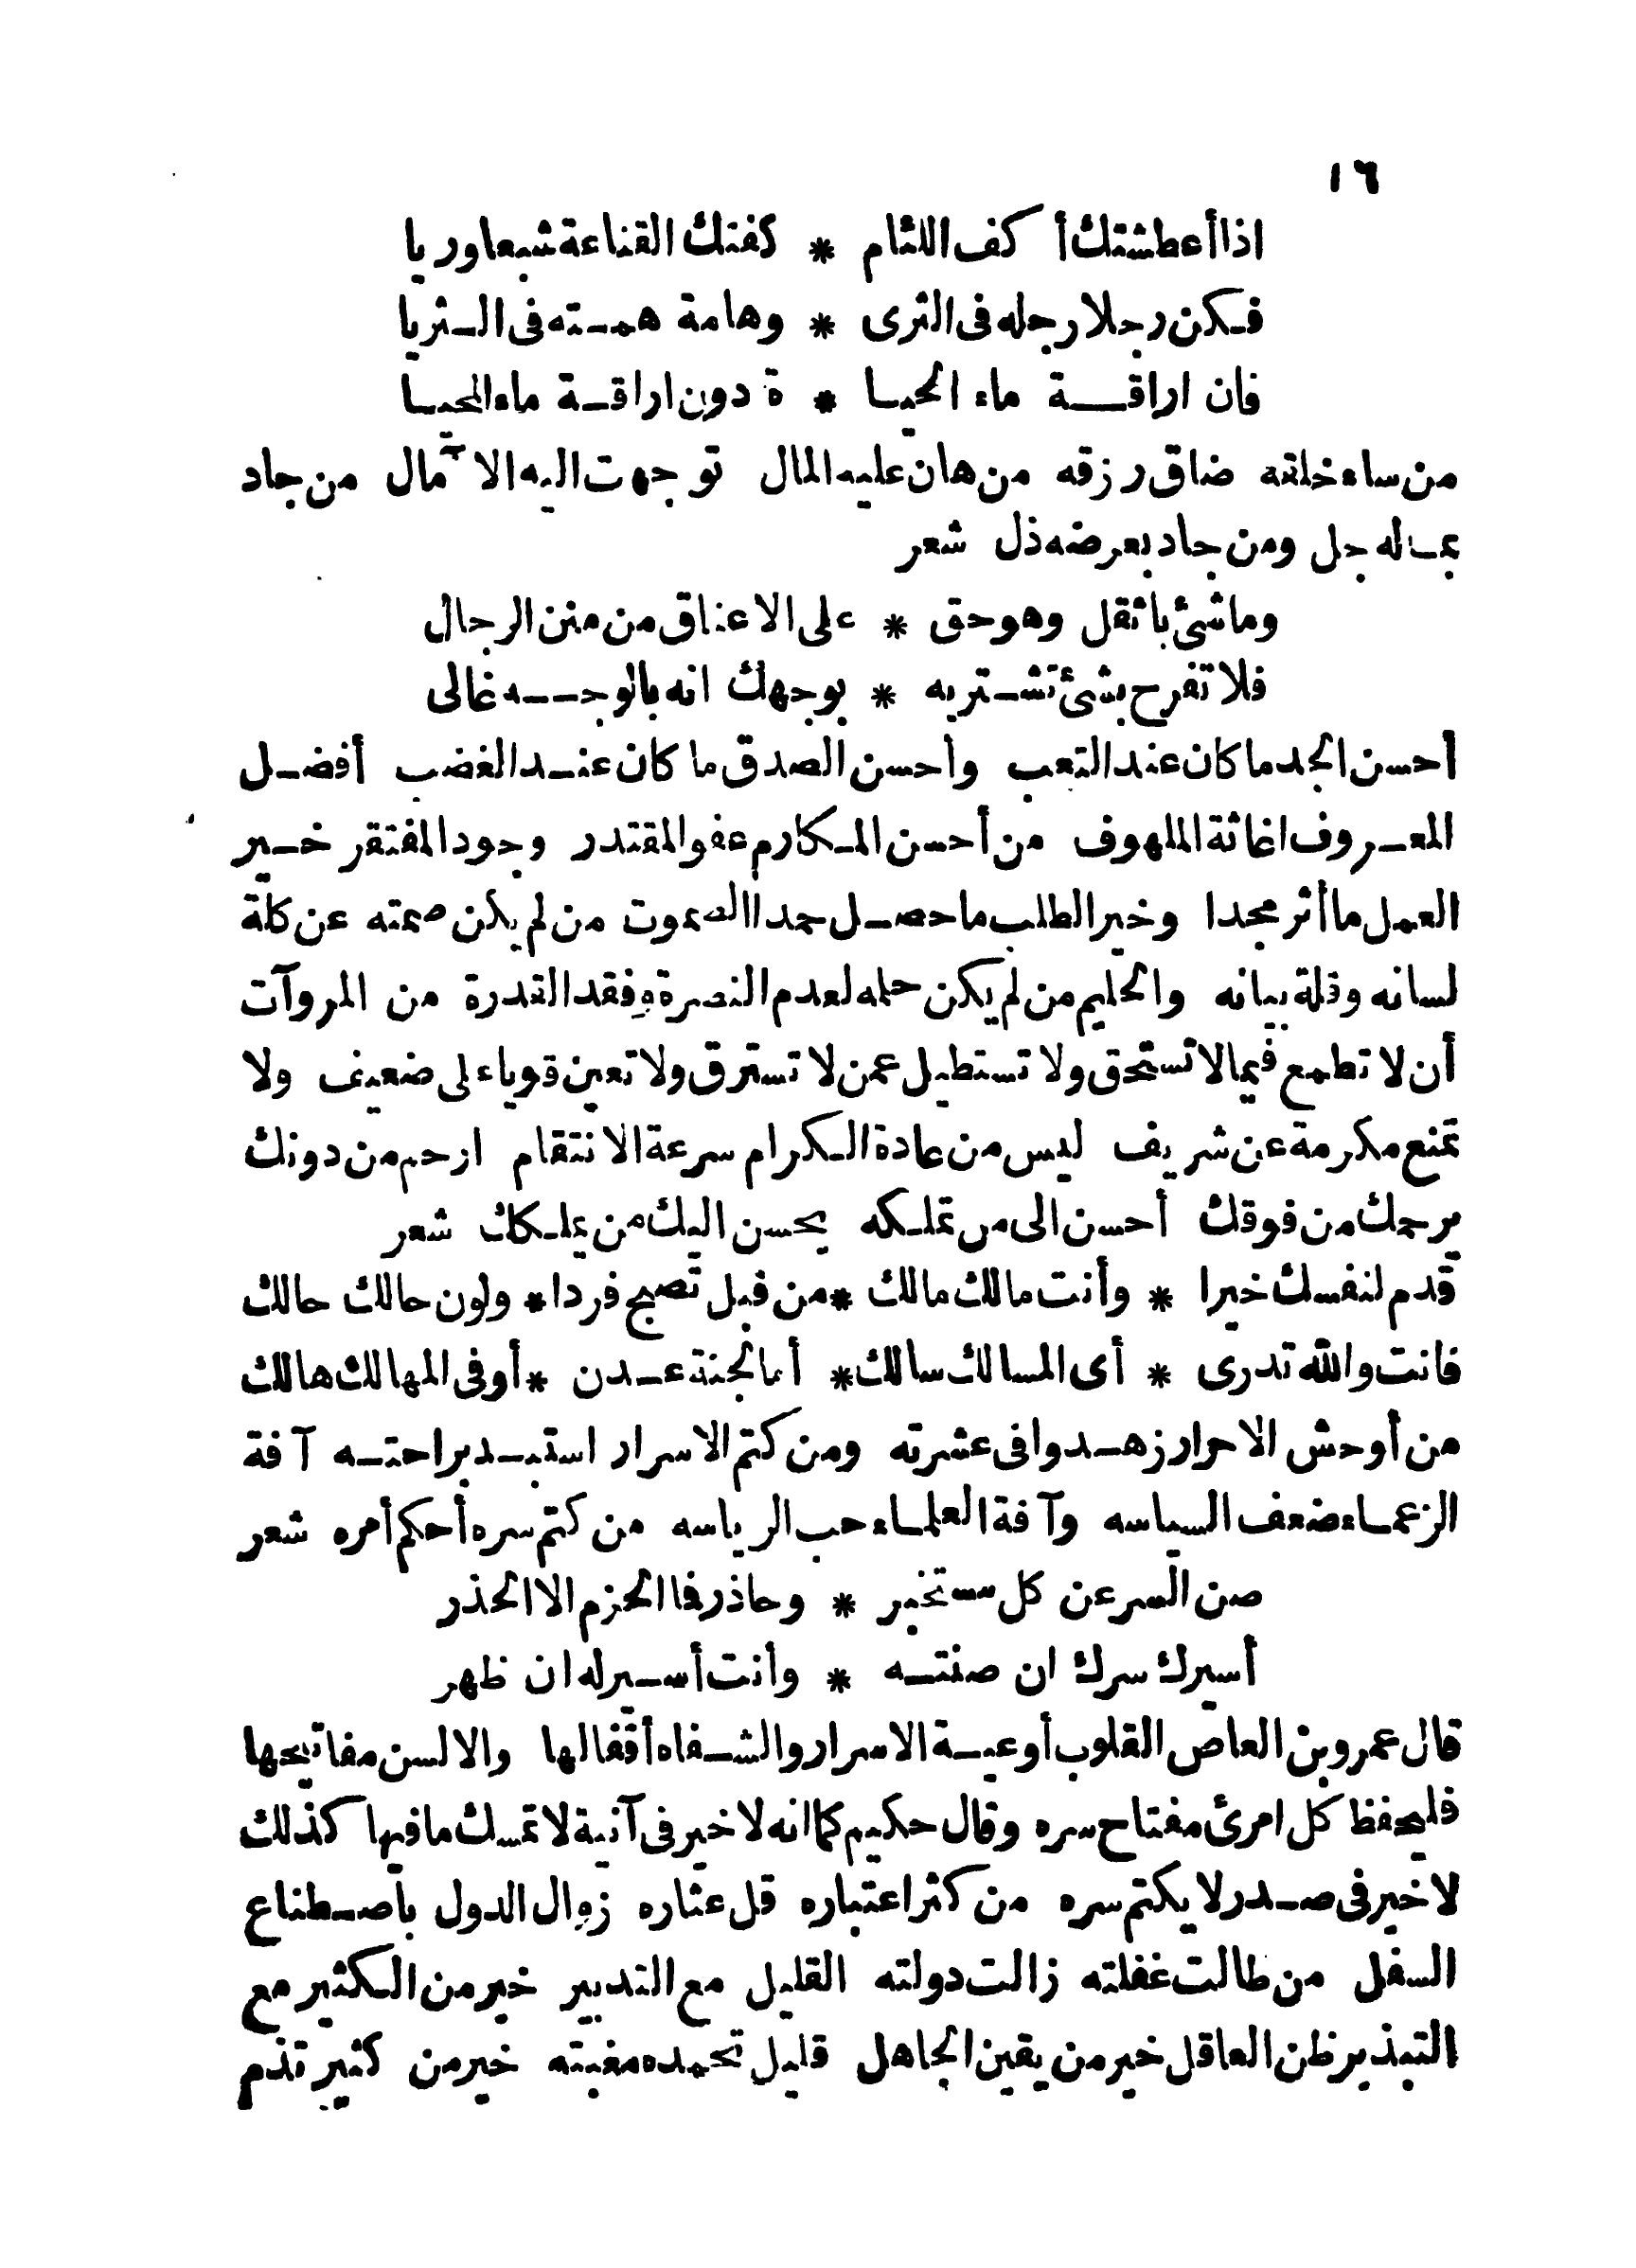 ١٦
اذا أعطشتك أكف اللئام * كفتك القناعة شبعا وريا
فكن رجلا رجله فى الثرى * وهامة همته فى الثريا
فان اراقة ماء الحيا * ة دون اراقة ماء المحيا
من ساء خلقه ضاق رزقه من هان عليه المال توجهت اليه الآمال من جاد
بماله جل ومن جاد بعرضه ذل شعر
وما شئ باثقل وهو حق * على الاعناق من منن الرجال
فلا تفرح بشئ تشتريه * بوجهك انه بالوجه غالى
أحسن الجد ما كان عند التعب وأحسن الصدق ما كان عند الغضب أفضل
المعروف اغاثة الملهوف من أحسن المكارم عفو المقتدر وجود المفتقر خير
العمل ما أثر مجدا وخير الطلب ما حصل حمدا الصموت من لم يكن صمته عن كلة
لسانه وذلة بيانه والحليم من لم يكن حلمه لعدم النصرة وفقد القدرة من المروآت
أن لا تطمع فيما لا تستحق ولا تستطيل عمن لا تسترق ولا تعين قويا على ضعيف ولا
تمنع مكرمة عن شريف ليس من عادة الكرام سرعة الانتقام ارحم من دونك
يرحمك من فوقك أحسن الى من تملكه يحسن اليك من يملكك شعر
قدم لنفسك خيرا * وأنت مالك مالك * من قبل تصبح فردا * ولون حالك حالك
فانت والله تدرى * أى المسالك سالك * أما لجنة عدن * أو فى المهالك هالك
من أوحش الاحرار زهدوا فى عشرته ومن كتم الاسرار استبد براحته آفة
الزعماء ضعف السياسه وآفة العلماء حب الرياسه من كتم سره أحكم أمره شعر
صن السر عن كل مستخبر * وحاذر فما الحزم الا الحذر
أسيرك سرك ان صنته * وأنت أسير له ان ظهر
قال عمرو بن العاص القلوب أوعية الاسرار والشفاه أقفالها والالسن مفاتيحها
فليحفظ كل امرئ مفتاح سره وقال حكيم كما انه لا خير فى آنية لا تمسك ما فيها كذلك
لا خير فى صدر لا يكتم سره من كثر اعتباره قل عثاره زوال الدول باصطناع
السفل من طالت غفلته زالت دولته القليل مع التدبير خير من الكثير مع
التبذير ظن العاقل خير من يقين الجاهل قليل تحمده مغبته خير من كثير تذم